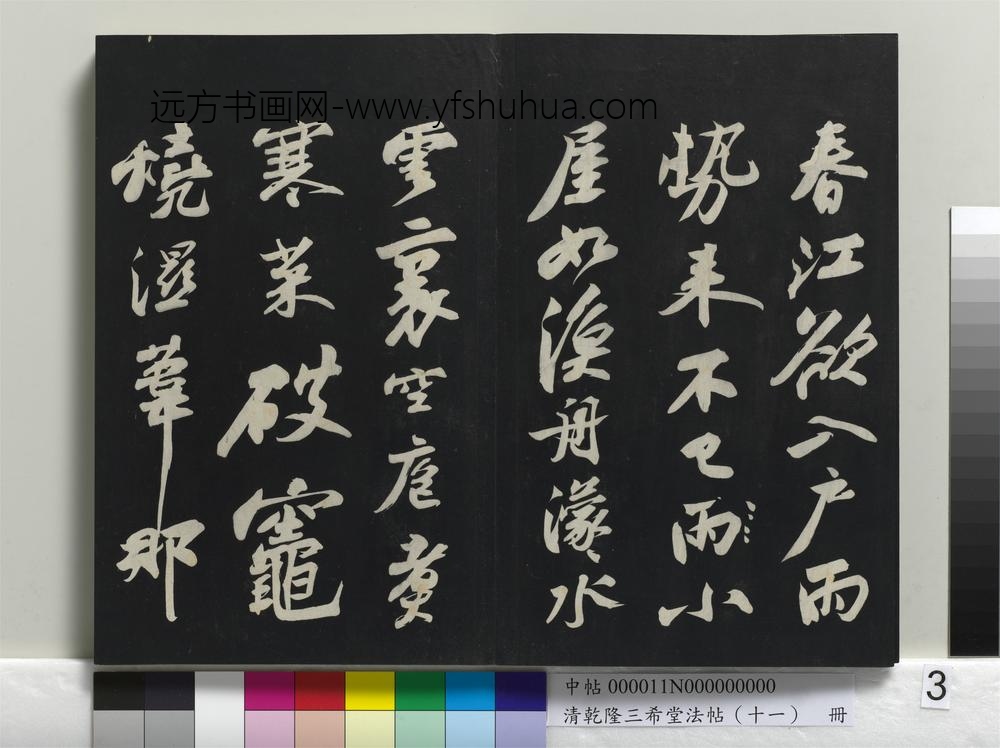 远方书画网-www.yfshuhua.com
春江欲入户雨
勢来不已雨小
屋如漁舟濛〻水
雲裏空庖煮
寒菜破竈
燒濕葦那
中帖 000011N000000000
清乾隆三希堂法帖（十一） 冊
3